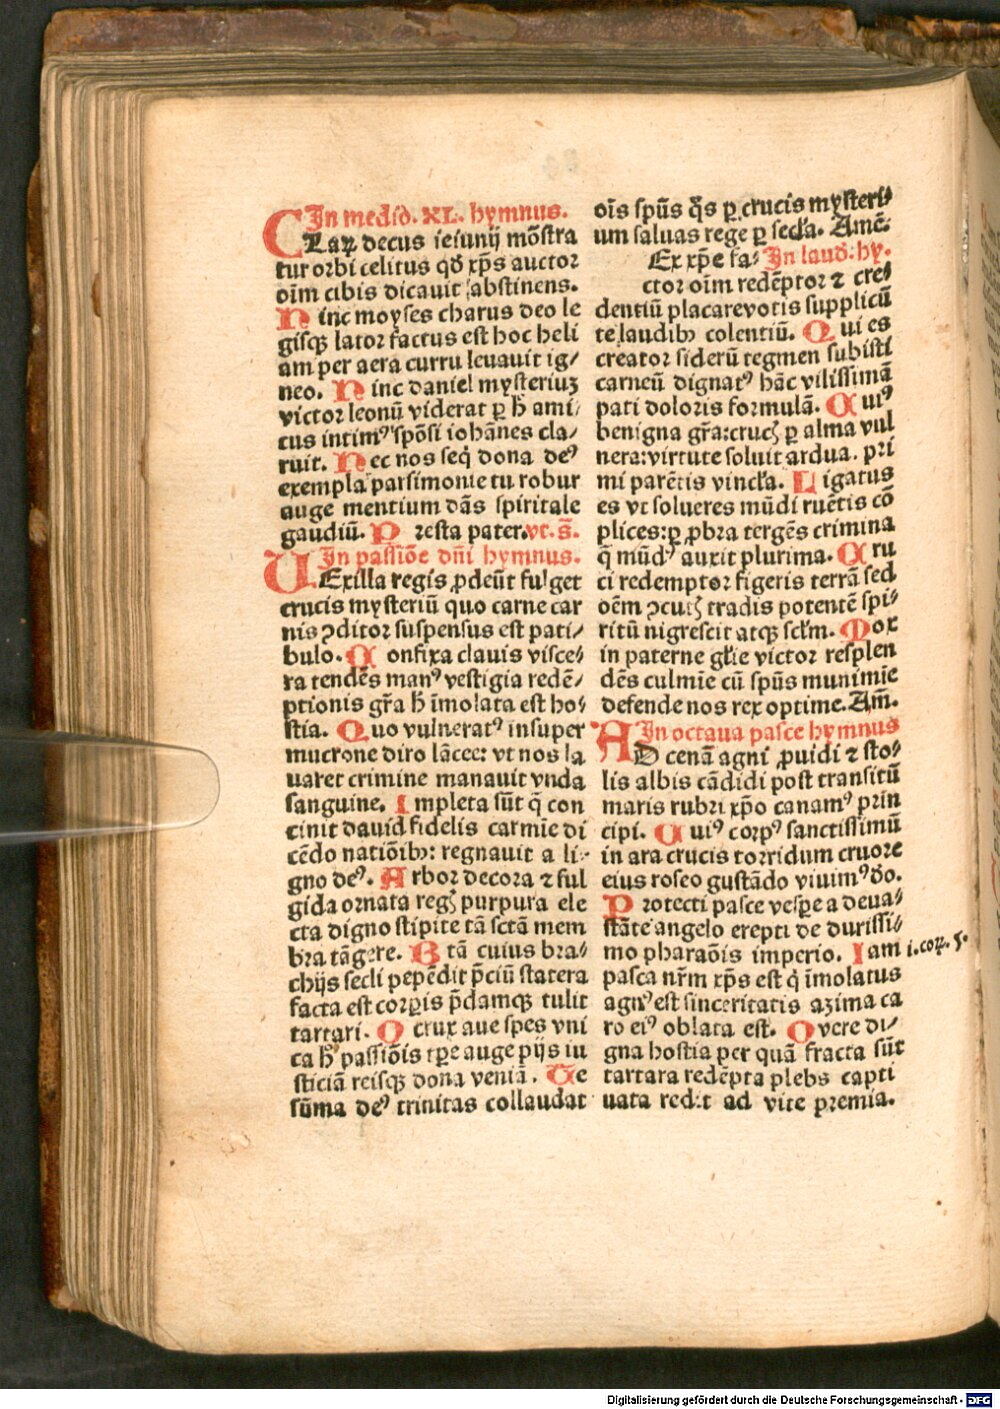 In medio. XL. hymnus.
CLaꝝ decus ieiunij mōstra
tur orbi celitus qđ xp̄s auctor
oīm cibis dicauit abstinens.
Hinc moyses charus deo le
gisqꝫ lator factus est hoc heli
am per aera curru leuauit ig/
neo. Hinc daniel mysteriuꝫ
victor leonū viderat ꝑ h̄ ami/
cus intimꝰ spōsi iohānes cla/
ruit. Nec nos seq̄ dona deꝰ
exempla parsimonie tu robur
auge mentium dās spiritale
gaudiū. Presta pater. vt. s̄.
In passiōe dn̄i hymnus.
VExilla regis ꝓdeūt fulget
crucis mysteriū quo carne car
nis ↄditor suspensus est pati/
bulo. Confixa clauis visce/
ra tendēs manꝰ vestigia redē/
ptionis gr̄a h̄ īmolata est ho/
stia. Quo vulneratꝰ insuper
mucrone diro lācee: vt nos la
uaret crimine manauit vnda
sanguine. Impleta sūt q̄ con
cinit dauid fidelis carmīe di
cēdo natiōibꝫ: regnauit a li/
gno deꝰ. Arbor decora ⁊ ful
gida ornata regꝭ purpura ele
cta digno stipite tā sctā mem
bra tāgere. Btā cuius bra/
chijs secli pepēdit p̄ciū statera
facta est corꝑis p̄damqꝫ tulit
tartari. O crux aue spes vni
ca h̄ passiōis tp̄e auge pijs iu
sticiā reisqꝫ dona veniā. Te
sūma deꝰ trinitas collaudat
oīs spūs q̄s ꝑ crucis mysteri/
um saluas rege ꝑ secl'a. Amē.
Ex xp̄e fa/ In laud. hy.
ctor oīm redēptor ⁊ cre/
dentiū placare votis supplicū
te laudibꝫ colentiū. Qui es
creator siderū tegmen subisti
carneū dignatꝰ hāc vilissimā
pati doloris formulā. Cuiꝰ
benigna gr̄a: crucꝭ ꝑ alma vul
nera: virtute soluit ardua. pri
mi parētis vincl'a. Ligatus
es vt solueres mūdi ruētis cō
plices: ꝑ ꝓbra tergēs crimina
q̄ mūdꝰ auxit plurima. Cru
ci redemptor figeris terrā sed
oēm ↄcutꝭ tradis potentē spi/
ritū nigrescit atqꝫ scl'm. Mox
in paterne gl'ie victor resplen
dēs culmīe cū spūs munimīe
defende nos rex optime. Am̄.
In octaua pasce hymnus
AD cenā agni ꝓuidi ⁊ sto/
lis albis cādidi post transitū
maris rubri xp̄o canamꝰ prin
cipi. Cuiꝰ corpꝰ sanctissimū
in ara crucis torridum cruore
eius roseo gustādo viuimꝰ đo.
Protecti pasce vespe a deua/
stāte angelo erepti de durissi/
mo pharaōis imperio. Iam i. coꝝ. 5.
pasca nr̄m xp̄s est q̄ īmolatus
agnꝰ est sinceritatis azima ca
ro eiꝰ oblata est. O vere di/
gna hostia per quā fracta sūt
tartara redēpta plebs capti
uata red:t ad vite premia.
Digitalisierung gefördert durch die Deutsche Forschungsgemeinschaft - DFG